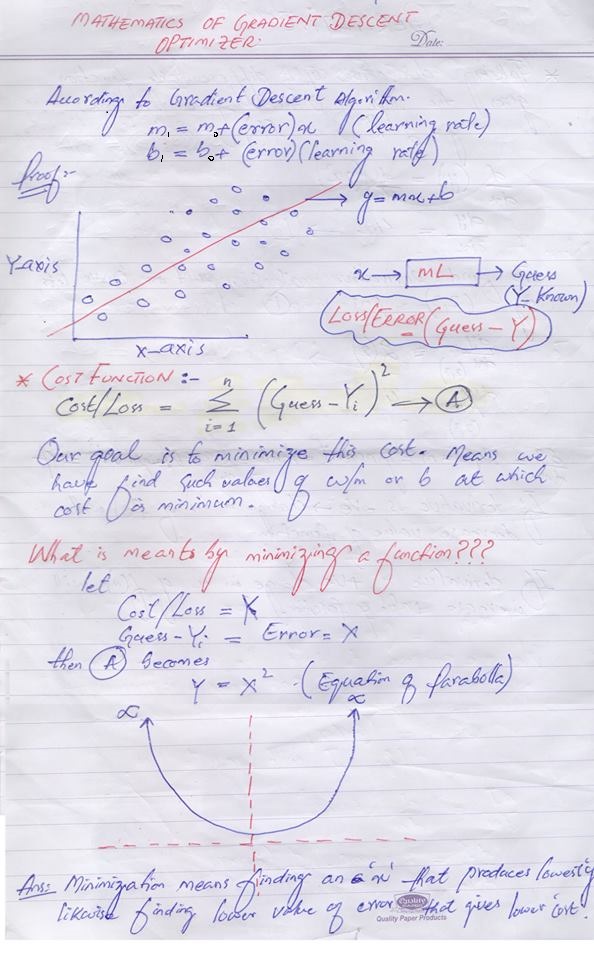 MATHEMATICS OF GRADIENT DESCENT
OPTIMIZER:
Date:
According to Gradient Descent Algorithm.
m₁ = m₀+(error)x (learning rate)
b₁ = b₀+ (error)(learning rate)
Proof:-
y = mx+b
Y-axis
x-axis
x → mL → Guess
(Y-Known)
Loss/ERROR(Guess-Y)
* COST FUNCTION:-
Cost/Loss = n∑i=1 (Guess-Yᵢ)² → A
Our goal is to minimize this cost. Means we
have find such values of w/m or b at which
cost is minimum.
What is meants by minimizing a function???
let
Cost/Loss = Y
Guess-Yᵢ = Error = X
then A becomes
Y = X² (Equation of Parabolla)
∝ ∝
Ans: Minimization means finding an 'x' that produces lowest 'y'
likwise finding lower value of error that gives lower cost.
Quality
Quality Paper Products